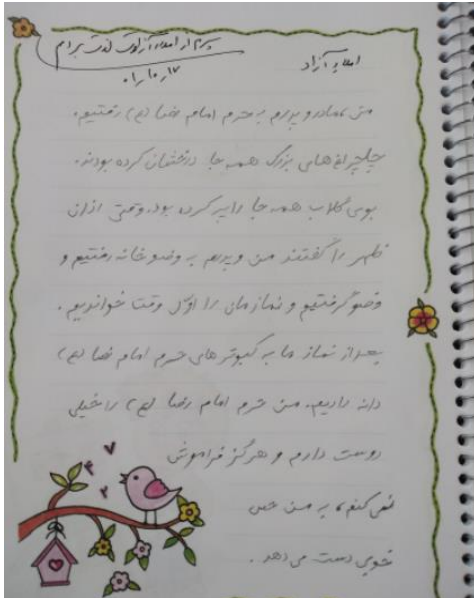 املاء آزاد
پسرم از املاء آزادت لذت بردم
۱۷،۱۰،۰۱
من، مادر و پدرم به حرم امام رضا (ع) رفتیم.
چلچراغ های بزرگ همه جا درخشان کرده بودند.
بوی گلاب همه جا را پر کرده بود. وقتی اذان
ظهر را گفتند من و پدرم به وضو خانه رفتیم و
وضو گرفتیم و نمازمان را اوّل وقت خواندیم.
بعد از نماز ما به کبوتر های حرم امام رضا (ع)
دانه دادیم. من حرم امام رضا (ع) را خیلی
دوست دارم و هرگز فراموش
نمی کنم، به من حس
خوبی دست می دهد.